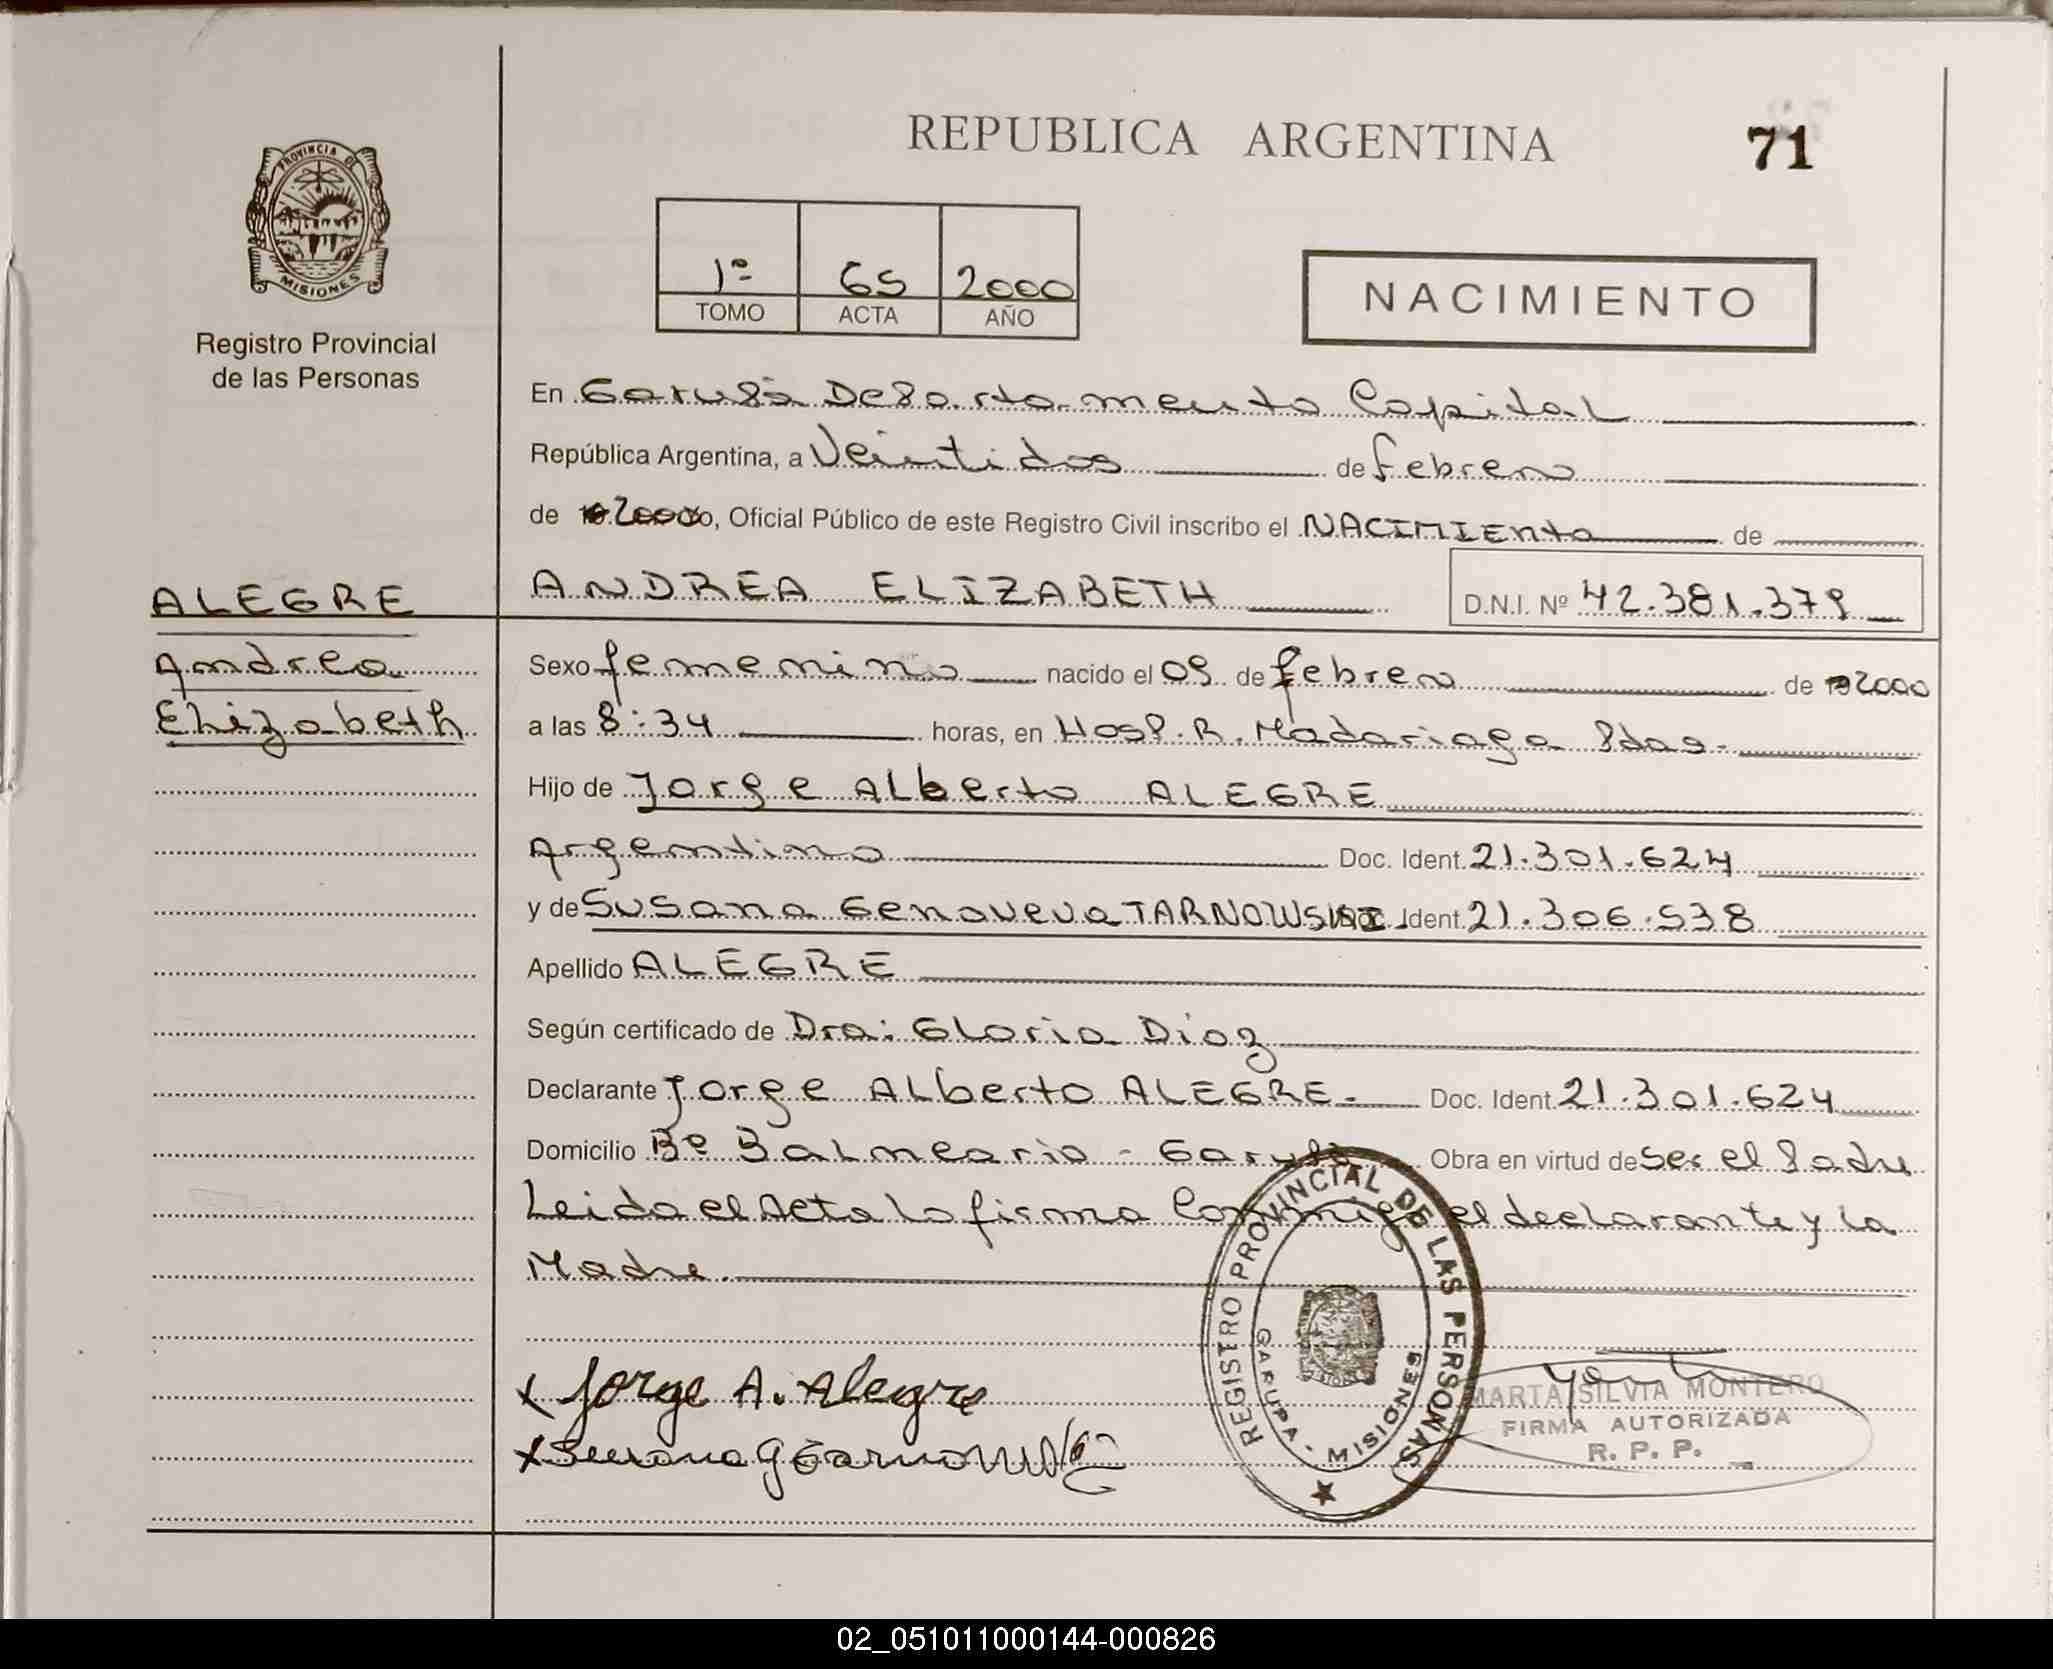 REPUBLICA ARGENTINA
71
PROVINCIA DE
MISIONES
Registro Provincial
de las Personas
1º 65 2000
TOMO ACTA AÑO
NACIMIENTO
En Garupá Departamento Capital
República Argentina, a Veintidos de febrero
de 2000 yo, Oficial Público de este Registro Civil inscribo el NACIMIENTO de
ALEGRE
Andrea
Elizabeth
ANDREA ELIZABETH D.N.I. Nº 42.381.379
Sexo femenino nacido el 09 de febrero de 2000
a las 8:34 horas, en Hosp. R. Madariaga Pdas.
Hijo de Jorge Alberto ALEGRE
Argentino Doc. Ident. 21.301.624
y de Susana Genoveva TARNOWSKI Doc. Ident. 21.306.538
Apellido ALEGRE
Según certificado de Dra: Gloria Diaz
Declarante Jorge Alberto ALEGRE. Doc. Ident. 21.301.624
Domicilio Bº Balneario - Garupá Obra en virtud de ser el Padre
Leida el Acta la firma Conmigo el declarante y la
Madre.
x Jorge A. Alegre
x Susana G Tarnowski
REGISTRO PROVINCIAL DE LAS PERSONAS
GARUPA - MISIONES
MARTA SILVIA MONTERO
FIRMA AUTORIZADA
R. P. P.
02_051011000144-000826